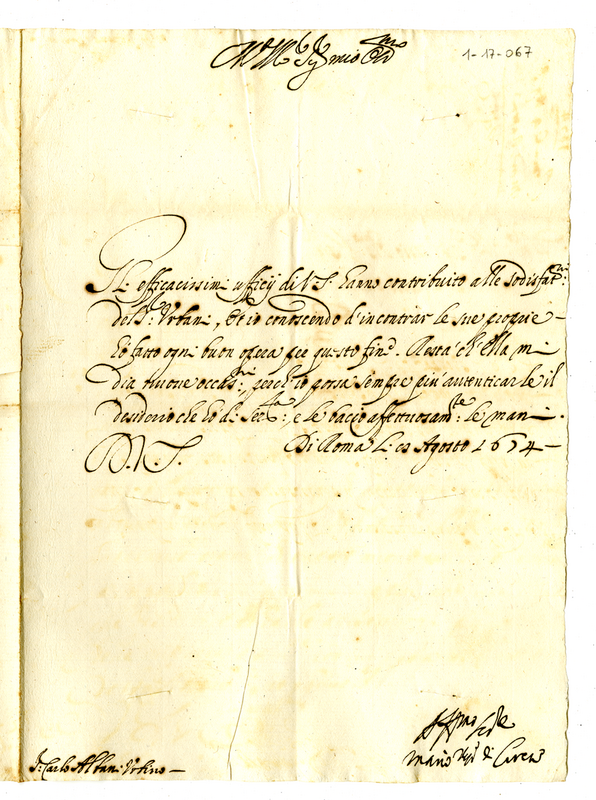 1-17-067
Gl'efficacissimi ufficij di V.S. hanno contribuito alle sodisfat.ni
del S.r Urbani, et io conoscendo d'incontrar le sue proprie
hò fatto ogni buon opera per questo fine. Resta ch'ella mi
dia nuove occas.ni, perch'io possa sempre più autenticarle il
desiderio che hò di ser.la, e le bacio affettuosam.te le mani.
D.V.S. Di Roma li Agosto 1654
Aff.mo
Mario
S. Carlo Albani Urbino